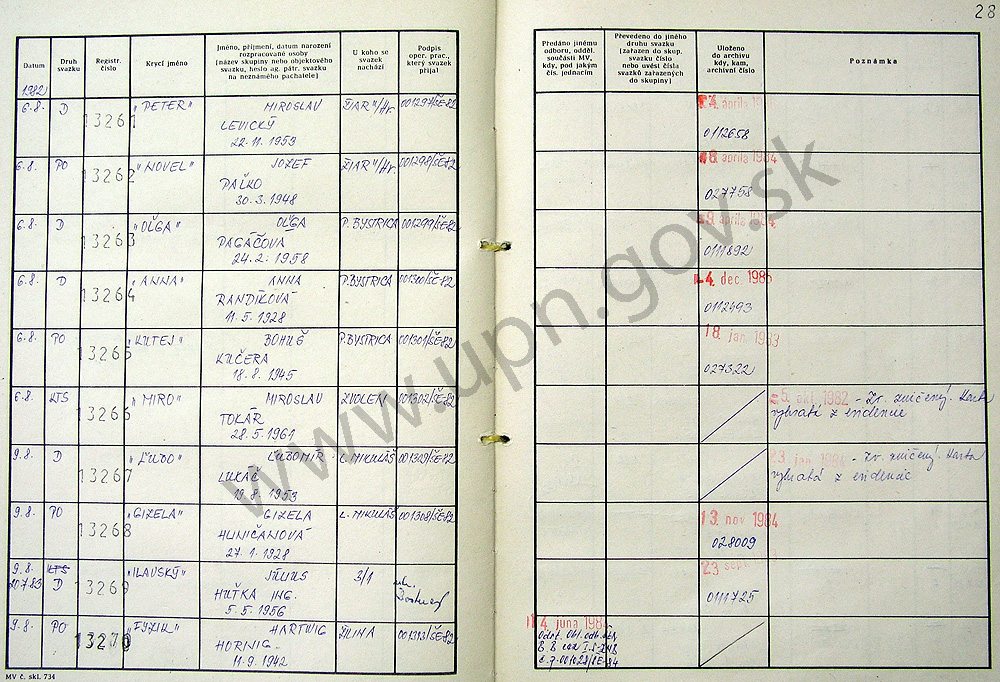 28
Datum
Druh svazku
Registr. číslo
Krycí jméno
Jméno, příjmení, datum narození
rozpracované osoby
(název skupiny nebo objektového
svazku, heslo ag. pátr. svazku
na neznámého pachatele)
U koho se
svazek
nachází
Podpis
oper. prac.,
který svazek
přijal
Předáno jinému
odboru, odděl.
součásti MV,
kdy, pod jakým
čís. jednacím
Převedeno do jiného
druhu svazku
(zařazen do skup.
svazku číslo
nebo uvést čísla
svazků zařazených
do skupiny)
Uloženo
do archivu
kdy, kam,
archivní číslo
Poznámka
1982
6.8. D 13261 "PETER" MIROSLAV ŽIAR n/Hr. 001297/ŠE-82
LEVICKÝ
22.11.1959
0112658
6.8. PO 13262 "NOVEL" JOZEF ŽIAR n/Hr. 001298/ŠE-82 8. apríla 1984
PAĽKO
30.3.1948
027758
6.8. D 13263 "OĽGA" OĽGA P. BYSTRICA 001299/ŠE-82 9. apríla 1984
PAGÁČOVÁ
24.2.1958
0111892
6.8. D 13264 "ANNA" ANNA P. BYSTRICA 001300/ŠE-82 4. dec 1985
RANDÍKOVÁ
11.5.1928
0112493
6.8. PO 13265 "KUTEJ" BOHUŠ P. BYSTRICA 001301/ŠE-82 18. jan. 1983
KUČERA
18.8.1945
027322
6.8. KTS 13266 "MIRO" MIROSLAV ZVOLEN 001302/ŠE-82 5. okt. 1982 - Zv. zničený. Karta
TOKÁR vybratá z evidencie
28.5.1961
9.8. D 13267 "ĽUBO" ĽUBOMÍR L. MIKULÁŠ 001309/ŠE-82 23. jan. 1984 - Zv. zničený. Karta
LUKÁČ vybratá z evidencie
19.8.1953
9.8. PO 13268 "GIZELA" GIZELA L. MIKULÁŠ 001308/ŠE-82 13. nov 1984
HUNIČANOVÁ
27.1.1928
028009
9.8. KTS 13269 "ILAVSKÝ" JÚLIUS 3/1 23 sept.
20.7.83 D HUTKA ING.
5.5.1956
0111725
9.8. PO 13270 "FYZIK" HARTWIG ŽILINA 001313/ŠE-82 14. júna 198
HORNIG
11.9.1942
MV č. skl. 734
www.upn.gov.sk